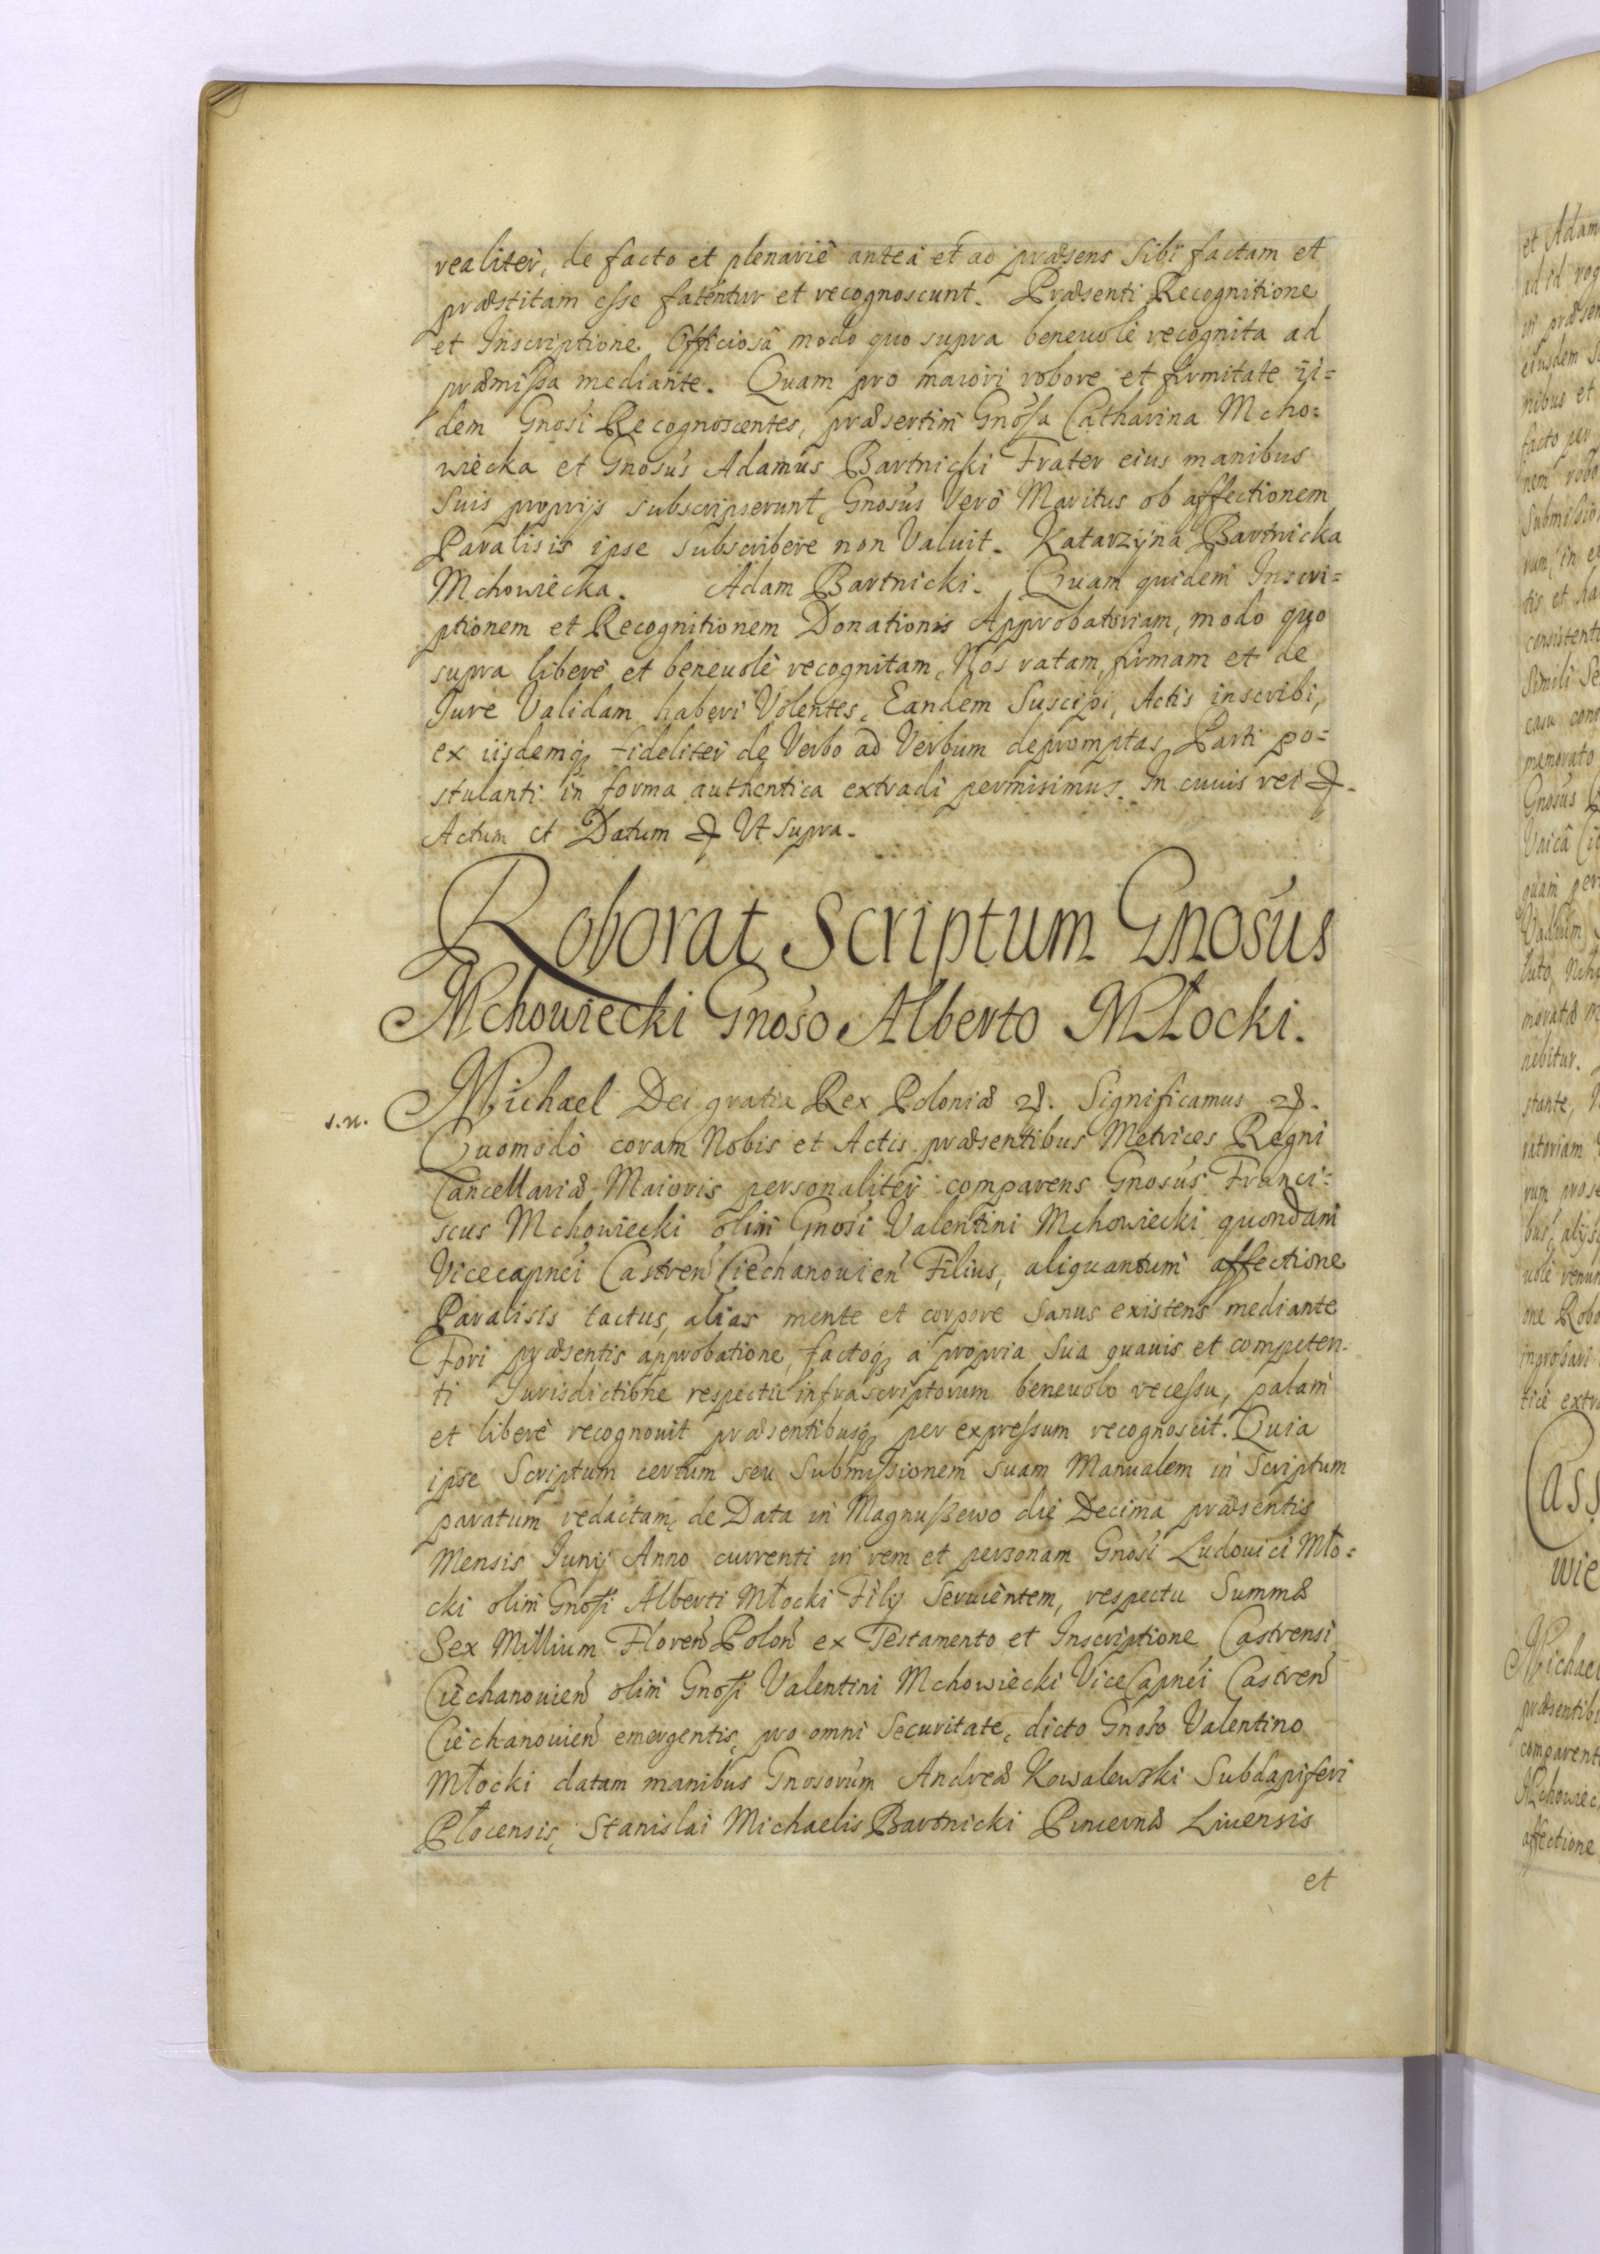 realiter, de facto et plenariè anteà et ad præsens sibi factam et
præstitam esse fatentur et recognoscunt. Præsenti Recognitione
et Inscriptione Officiosâ modo quo supra beneuolè recognita ad
præmissa mediante. Quam pro maiori robore et firmitate ij=
dem Gnosi Recognoscentes, præsertim Gnosa Catharina Mcho=
wiecka et Gnosus Adamus Bartnicki Frater eius manibus
suis proprijs subscripserunt, Gnosus verò Maritus ob affectionem
Paralisis ipse subscribere non Valuit. Katarzyna Bartnicka
Mchowiecka. Adam Bartnicki. Quam quidem Inscri=
ptionem et Recognitionem Donationis Approbatoriam, modo quo
supra liberè et beneuolè recognitam, Nos ratam, firmam et de
Jure Validam haberi Volentes, Eandem Suscipi, Actis inscribi,
ex iisdemq fideliter de Verbo ad Verbum depromptas Parti po=
stulanti in forma authentica extradi permisimus. In cuius rei &.
Actum et Datum & Ut supra.
Roborat Scriptum Gnosus
Mchowiecki Gnoso Alberto Młocki.
s.n.
Michael Dei gratia Rex Poloniæ &. Significamus &.
Quomodò coram Nobis et Actis præsentibus Metrices Regni
Cancellariæ Maioris personaliter comparens Gnosus Franci=
scus Mchowiecki olim Gnosi Valentini Mchowiecki quondam
Vicecapnei Castren Ciechanouien Filius, aliquantum affectione
Paralisis tactus, alias mente et corpore sanus existens mediante
Fori præsentis approbatione, factoq a propria sua quauis et competen=
ti Jurisdictione respectu infrascriptorum beneuolo recessu, palam
et liberè recognouit præsentibusq per expressum recognoscit. Quia
ipse Scriptum certum seu Submissionem suam Manualem in Scriptum
paratum redactam, de Data in Magnuszewo die Decima præsentis
Mensis Junij Anno currenti in rem et personam Gnosi Ludouici Mło=
cki olim Gnosi Alberti Młocki Filij Seruientem, respectu Summæ
Sex Millium Floren Polon ex Testamento et Inscriptione Castrensi
Ciechanouien olim Gnosi Valentini Mchowiecki ViceCapnei Castren
Ciechanouien emergentis, pro omni Securitate, dicto Gnoso Valentino
Młocki datam manibus Gnosorum Andreæ Kowalewski Subdapiferi
Płocensis, Stanislai Michaelis Bartnicki Pincernæ Liuensis
et